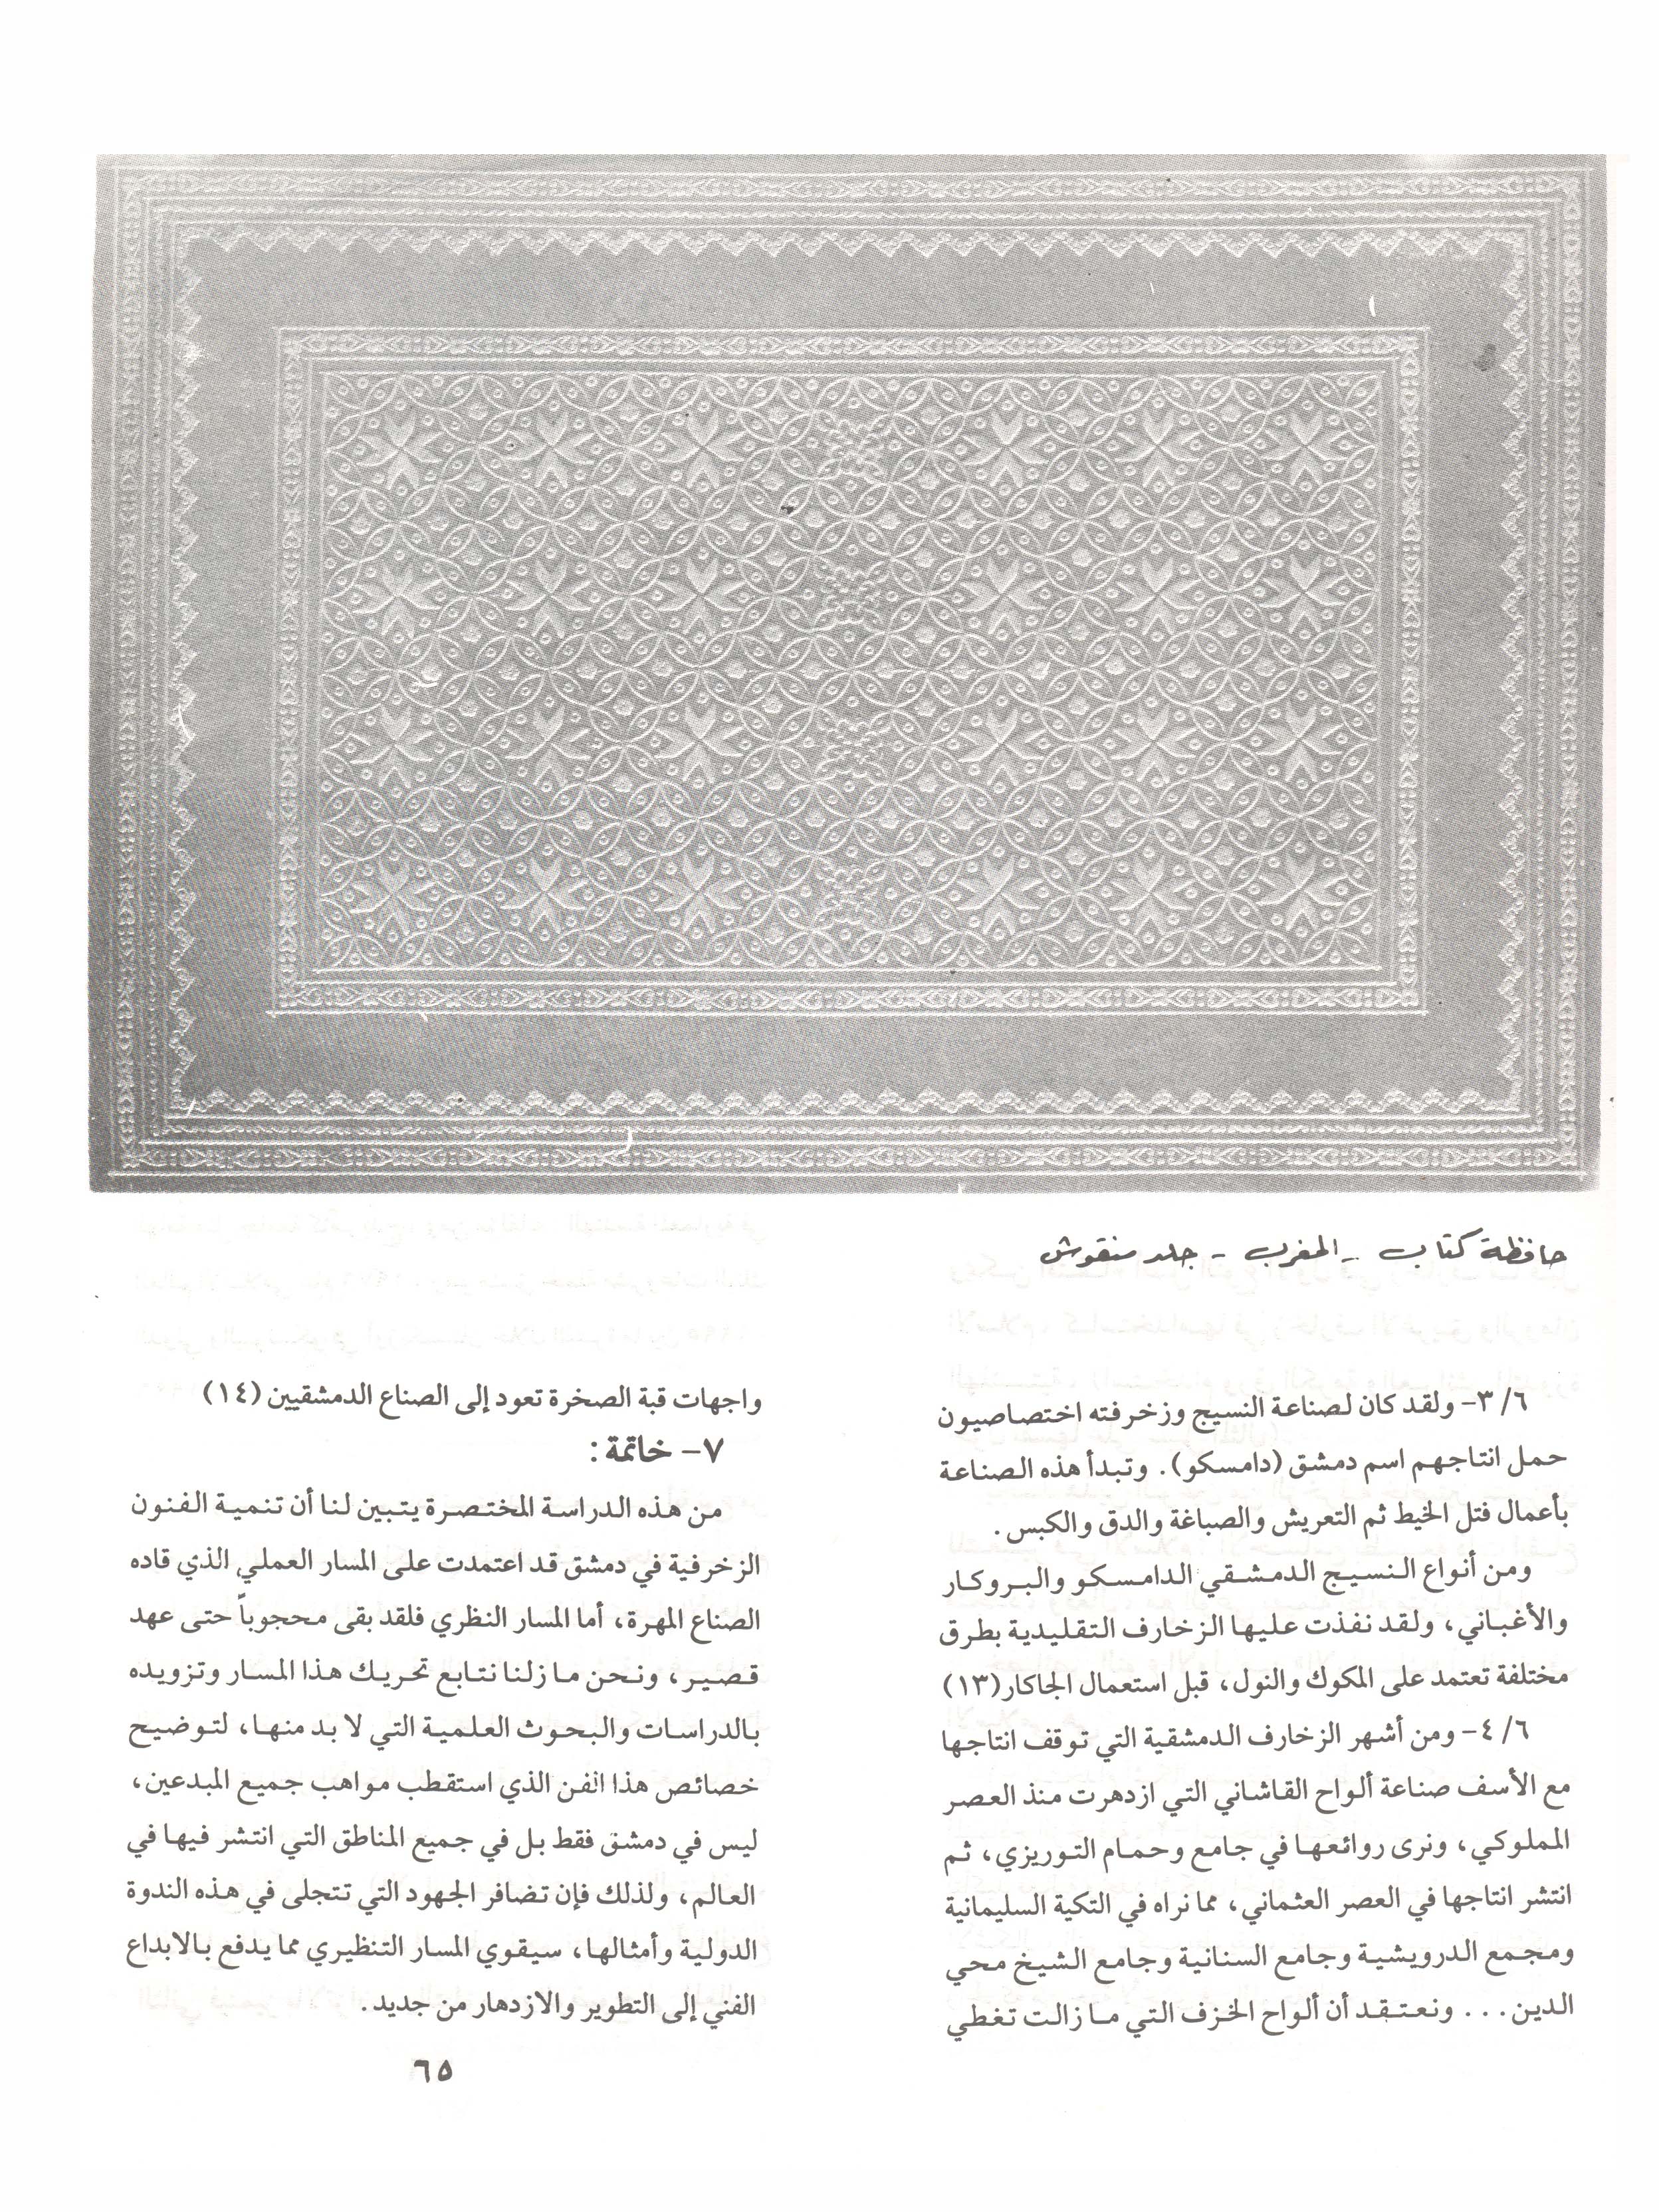 حافظة كتاب - المغرب - جلد منقوش
٦/ ٣- ولقد كان لصناعة النسيج وزخرفته اختصاصيون
حمل انتاجهم اسم دمشق (دامسكو). وتبدأ هذه الصناعة
بأعمال فتل الخيط ثم التعريش والصباغة والدق والكبس.
ومن أنواع النسيج الدمشقي الدامسكو والبروكار
والأغباني، ولقد نفذت عليها الزخارف التقليدية بطرق
مختلفة تعتمد على المكوك والنول، قبل استعمال الجاكار(١٣)
٦/ ٤- ومن أشهر الزخارف الدمشقية التي توقف انتاجها
مع الأسف صناعة ألواح القاشاني التي ازدهرت منذ العصر
المملوكي، ونرى روائعها في جامع وحمام التوريزي، ثم
انتشر انتاجها في العصر العثماني، مما نراه في التكية السليمانية
ومجمع الدرويشية وجامع السنانية وجامع الشيخ محي
الدين... ونعتقد أن ألواح الخزف التي مازالت تغطي
واجهات قبة الصخرة تعود إلى الصناع الدمشقيين (١٤)
٧- خاتمة:
من هذه الدراسة المختصرة يتبين لنا أن تنمية الفنون
الزخرفية في دمشق قد اعتمدت على المسار العملي الذي قاده
الصناع المهرة، أما المسار النظري فلقد بقى محجوباً حتى عهد
قصير، ونحن مازلنا نتابع تحريك هذا المسار وتزويده
بالدراسات والبحوث العلمية التي لا بد منها، لتوضيح
خصائص هذا الفن الذي استقطب مواهب جميع المبدعين،
ليس في دمشق فقط بل في جميع المناطق التي انتشر فيها في
العالم، ولذلك فإن تضافر الجهود التي تتجلى في هذه الندوة
الدولية وأمثالها، سيقوي المسار التنظيري مما يدفع بالابداع
الفني إلى التطوير والازدهار من جديد.
٦٥